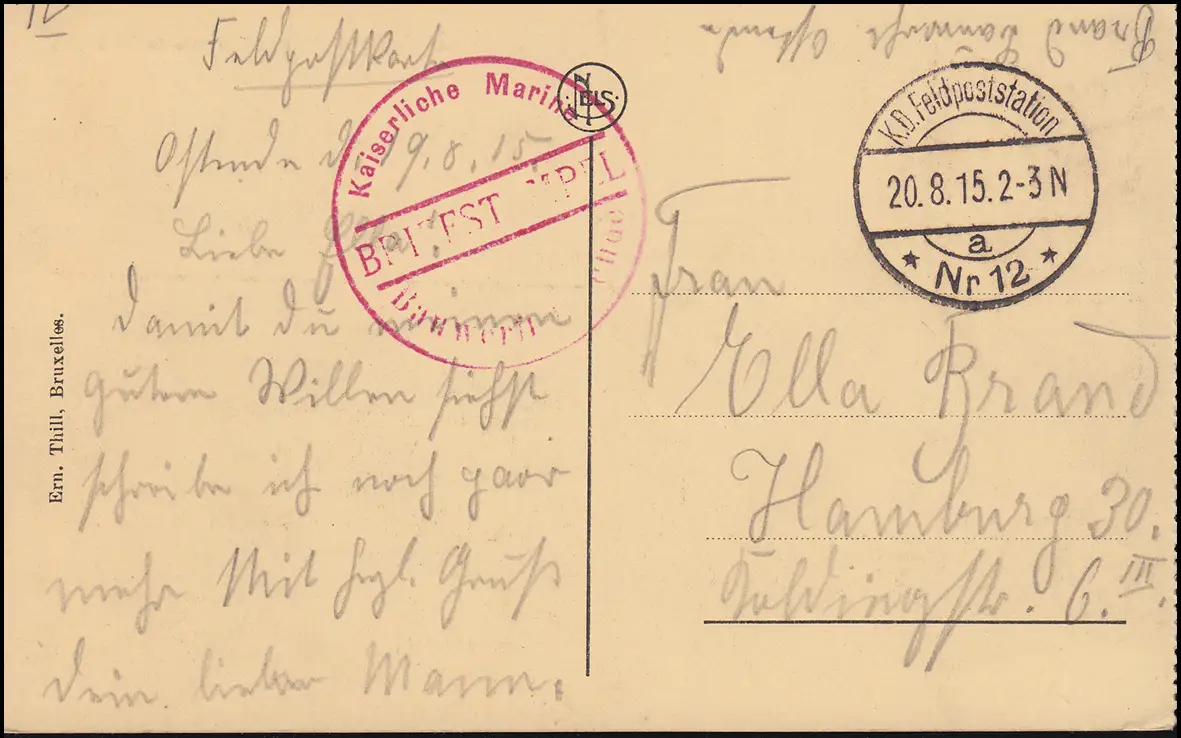 Feldpostkarte
Ostende d. 19.8.15.
Liebe Ella!
damit du meinen
guten Willen siehst
schreibe ich noch paar
mehr Mit hzl. Gruß
dein lieber Mann.
Kaiserliche Marine
BRIEFSTEMPEL
NELS
Ern. Thill, Bruxelles.
Brand Ostende
K.D. Feldpoststation
20.8.15.2-3N
a
* Nr 12 *
Frau
Ella Brand
Hamburg 30.
Koldingstr. 6. III.